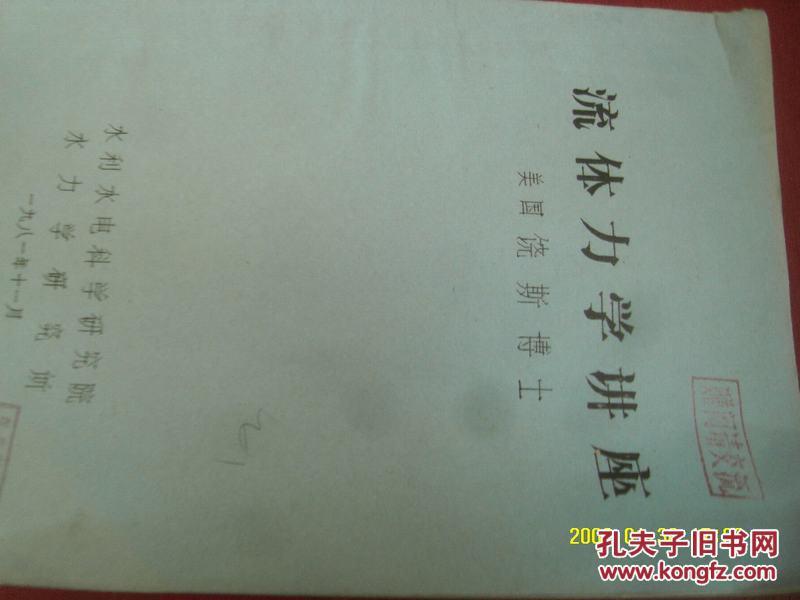 流体力学讲座
美国 饶斯博士
水利水电科学研究院
水力学研究所
一九八一年十一月
孔夫子旧书网
www.kongfz.com